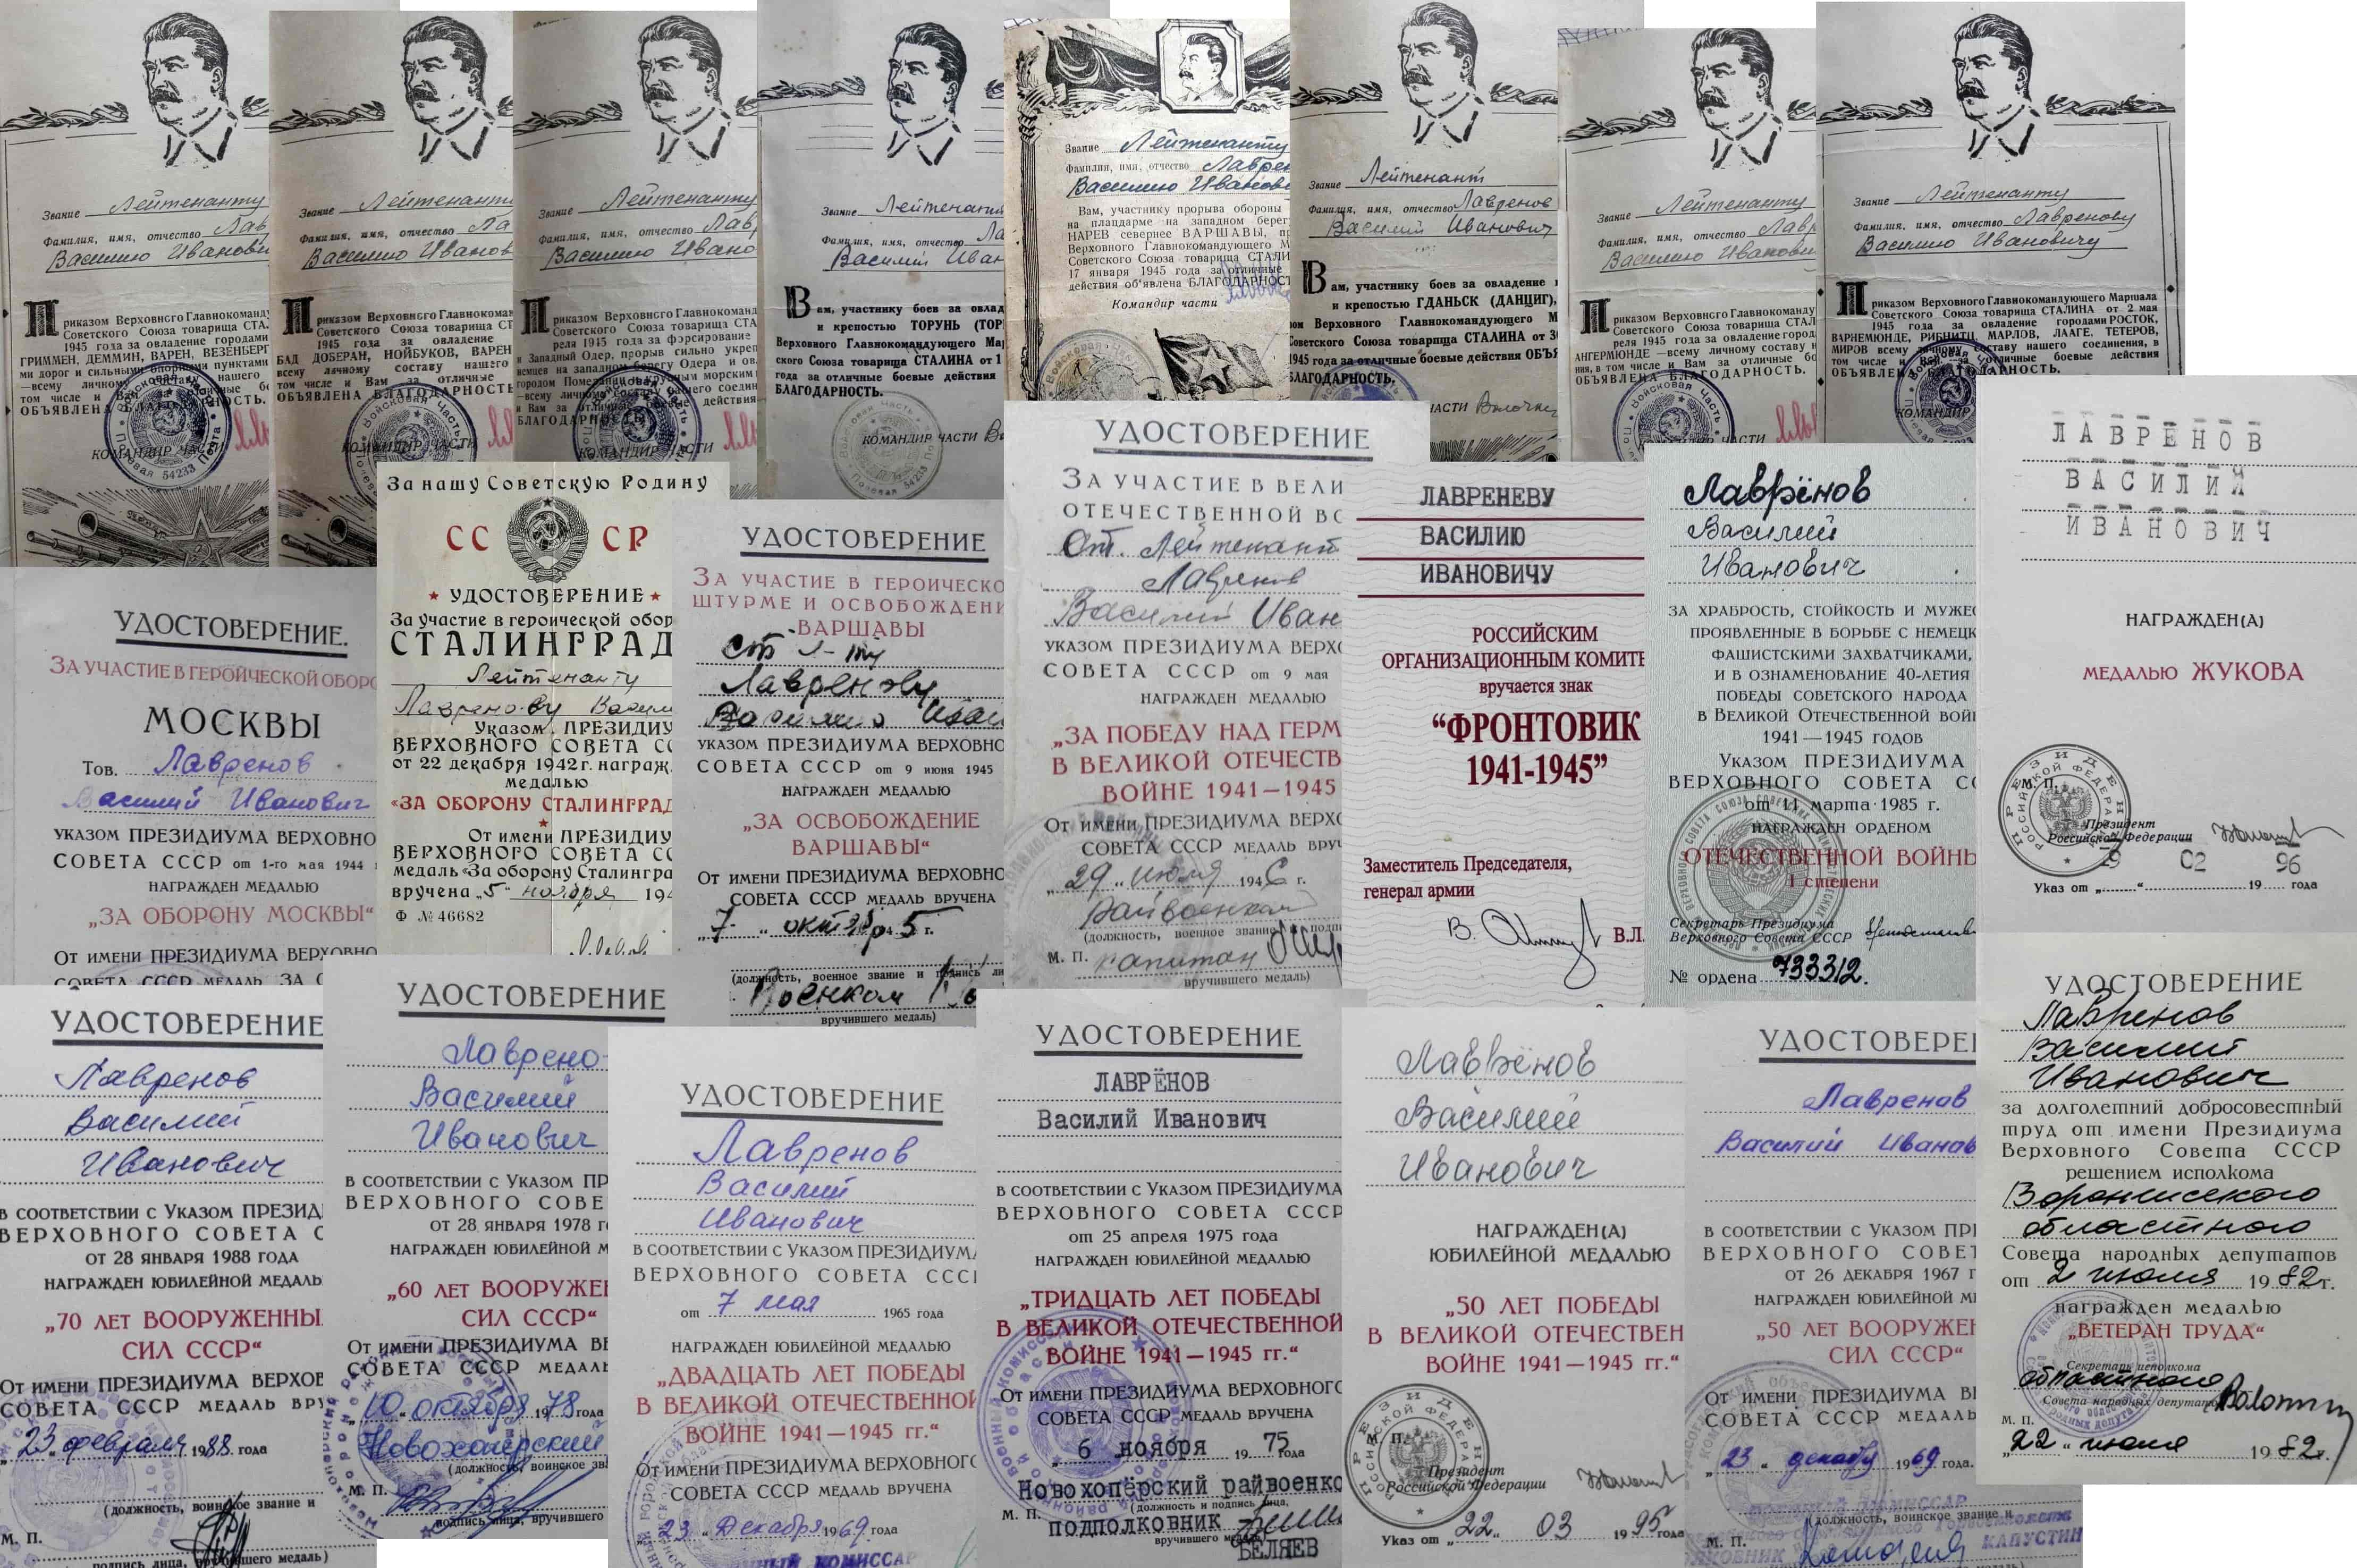 Звание Лейтенанту
Фамилия, имя, отчество Лав
Василию Иванови
Приказом Верховного Главнокоманду
Советского Союза товарища СТА
1945 года за овладение городами
ГРИММЕН, ДЕММИН, ВАРЕН, ВЕЗЕНБЕРГ
ми дорог и сильными опорными пунктами
—всему личному нашего
том числе и Вам за
ОБЪЯВЛЕНА БЛАГОДАРНОСТЬ.
КОМАНДИР ЧАС
Войсковая Часть Полевая Почта 54233
Звание Лейтенант
Фамилия, имя, отчество Ла
Василию Иванов
Приказом Верховного Главнокоман
Советского Союза товарища СТ
1945 года за овладение
БАД ДОБЕРАН, НОЙБУКОВ, ВАРЕН
всему личному составу нашего
том числе и Вам за отличные
ОБЪЯВЛЕНА БЛАГОДАРНОСТЬ
КОМАНДИР ЧАСТИ
Звание Лейтенанту
Фамилия, имя, отчество Лав
Василию Ивано
Приказом Верховного Главнокоманд
Советского Союза товарища СТА
реля 1945 года за форсирование
и Западный Одер, прорыв сильно укреп
немцев на западном берегу Одера и ов
городом Померании и крупным морским
—всему личному составу нашего соедин
и Вам за отличные боевые действия
БЛАГОДАРНОСТЬ
КОМАНДИР ЧАСТИ
Звание Лейтенант
Фамилия, имя, отчество Ла
Василий Иван
Вам, участнику боев за овлад
и крепостью ТОРУНЬ (ТОР
Верховного Главнокомандующего Ма
ского Союза товарища СТАЛИНА от 1
года за отличные боевые действия
БЛАГОДАРНОСТЬ.
КОМАНДИР ЧАСТИ
Звание Лейтенанту
Фамилия, имя, отчество Лаврен
Василию Иванови
Вам, участнику прорыва обороны
на плацдарме на западном берег
НАРЕВ севернее ВАРШАВЫ, пр
Верховного Главнокомандующего М
Советского Союза товарища СТАЛИ
17 января 1945 года за отличные
действия об'явлена БЛАГОДАРНОСТ
Командир части
Звание Лейтенант
Фамилия, имя, отчество Лавренов
Василий Иванович
Вам, участнику боев за овладение
и крепостью ГДАНЬСК (ДАНЦИГ),
ом Верховного Главнокомандующего М
Советского Союза товарища СТАЛИНА от 3
1945 года за отличные боевые действия ОБЪЯ
БЛАГОДАРНОСТЬ.
ЧАСТИ
Звание Лейтенанту
Фамилия, имя, отчество Лавр
Василию Иванови
Приказом Верховного Главнокоманду
Советского Союза товарища СТАЛ
реля 1945 года за овладение город
АНГЕРМЮНДЕ —всему личному составу
ния, в том числе и Вам за отличные бо
ОБЪЯВЛЕНА БЛАГОДАРНОСТЬ.
ЧАСТИ
Звание Лейтенанту
Фамилия, имя, отчество Лавренову
Василию Ивановичу
Приказом Верховного Главнокомандующего Маршала
Советского Союза товарища СТАЛИНА от 2 мая
1945 года за овладение городами РОСТОК,
ВАРНЕМЮНДЕ, РИБНИТЦ, МАРЛОВ, ЛААГЕ, ТЕТЕРОВ,
МИРОВ всему личному составу нашего соединения, в
том числе и Вам за отличные боевые действия
ОБЪЯВЛЕНА БЛАГОДАРНОСТЬ.
КОМАНДИР
УДОСТОВЕРЕНИЕ.
ЗА УЧАСТИЕ В ГЕРОИЧЕСКОЙ ОБОРО
МОСКВЫ
Тов. Лавренов
Василий Иванович
УКАЗОМ ПРЕЗИДИУМА ВЕРХОВНО
СОВЕТА СССР от 1-го мая 1944
НАГРАЖДЕН МЕДАЛЬЮ
„ЗА ОБОРОНУ МОСКВЫ“
ОТ ИМЕНИ ПРЕЗИДИУМА ВЕРХОВНО
СОВЕТА СССР МЕДАЛЬ ЗА О
За нашу Советскую Родину
СССР
УДОСТОВЕРЕНИЕ
За участие в героической обор
СТАЛИНГРАД
Лейтенанту
Лавренову Васил
Указом ПРЕЗИДИУ
ВЕРХОВНОГО СОВЕТА СС
от 22 декабря 1942 г. награж
медалью
«ЗА ОБОРОНУ СТАЛИНГРАД
От имени ПРЕЗИДИУ
ВЕРХОВНОГО СОВЕТА СС
медаль «За оборону Сталингра
вручена „5“ ноября 194
Ф № 46682
УДОСТОВЕРЕНИЕ
ЗА УЧАСТИЕ В ГЕРОИЧЕСКО
ШТУРМЕ И ОСВОБОЖДЕНИ
ВАРШАВЫ
ст л-ту
Лавренову
Василию Иван
УКАЗОМ ПРЕЗИДИУМА ВЕРХОВНО
СОВЕТА СССР от 9 июня 1945
НАГРАЖДЕН МЕДАЛЬЮ
„ЗА ОСВОБОЖДЕНИЕ
ВАРШАВЫ“
ОТ ИМЕНИ ПРЕЗИДИУМА ВЕРХОВНО
СОВЕТА СССР МЕДАЛЬ ВРУЧЕНА
„7“ октября 1945 г.
(должность, военное звание и подпись ли
Военком
вручившего медаль)
УДОСТОВЕРЕНИЕ
ЗА УЧАСТИЕ В ВЕЛИ
ОТЕЧЕСТВЕННОЙ ВО
Ст. Лейтенант
Лавренов
Василий Иван
УКАЗОМ ПРЕЗИДИУМА ВЕРХО
СОВЕТА СССР от 9 мая
НАГРАЖДЕН МЕДАЛЬЮ
„ЗА ПОБЕДУ НАД ГЕРМ
В ВЕЛИКОЙ ОТЕЧЕСТВ
ВОЙНЕ 1941—1945
ОТ ИМЕНИ ПРЕЗИДИУМА ВЕРХО
СОВЕТА СССР МЕДАЛЬ ВРУЧ
„29“ июля 1946 г.
Райвоенком
(должность, военное звание и подпи
М. П. капитан
вручившего медаль)
ЛАВРЕНЕВУ
ВАСИЛИЮ
ИВАНОВИЧУ
РОССИЙСКИМ
ОРГАНИЗАЦИОННЫМ КОМИТЕ
вручается знак
“ФРОНТОВИК
1941-1945”
Заместитель Председателя,
генерал армии
В.Л.
Лаврёнов
Василий
Иванович
ЗА ХРАБРОСТЬ, СТОЙКОСТЬ И МУЖЕС
ПРОЯВЛЕННЫЕ В БОРЬБЕ С НЕМЕЦК
ФАШИСТСКИМИ ЗАХВАТЧИКАМИ,
И В ОЗНАМЕНОВАНИЕ 40-ЛЕТИЯ
ПОБЕДЫ СОВЕТСКОГО НАРОДА
В ВЕЛИКОЙ ОТЕЧЕСТВЕННОЙ ВОЙ
1941—1945 ГОДОВ
УКАЗОМ ПРЕЗИДИУМА
ВЕРХОВНОГО СОВЕТА СС
от 11 марта 1985 г.
НАГРАЖДЕН ОРДЕНОМ
ОТЕЧЕСТВЕННОЙ ВОЙНЫ
I степени
Секретарь Президиума
Верховного Совета СССР
№ ордена 733312.
ЛАВРЕНОВ
ВАСИЛИЙ
ИВАНОВИЧ
НАГРАЖДЕН(А)
МЕДАЛЬЮ ЖУКОВА
М. П.
Президент
Российской Федерации
9 02 96
Указ от „ “ 19 года
УДОСТОВЕРЕНИЕ
Лавренов
Василий
Иванович
В СООТВЕТСТВИИ С УКАЗОМ ПРЕЗИД
ВЕРХОВНОГО СОВЕТА С
ОТ 28 ЯНВАРЯ 1988 ГОДА
НАГРАЖДЕН ЮБИЛЕЙНОЙ МЕДАЛЬ
„70 ЛЕТ ВООРУЖЕННЫ
СИЛ СССР“
ОТ ИМЕНИ ПРЕЗИДИУМА ВЕРХОВ
СОВЕТА СССР МЕДАЛЬ ВРУ
„23“ февраля 1988 года
(должность, воинское звание и
М. П.
подпись лица, вручившего медаль)
УДОСТОВЕРЕНИЕ
Лаврено
Василий
Иванович
В СООТВЕТСТВИИ С УКАЗОМ ПР
ВЕРХОВНОГО СОВЕ
ОТ 28 ЯНВАРЯ 1978 Г
НАГРАЖДЕН ЮБИЛЕЙНОЙ М
„60 ЛЕТ ВООРУЖЕ
СИЛ СССР“
ОТ ИМЕНИ ПРЕЗИДИУМА ВЕ
СОВЕТА СССР МЕДАЛЬ
„10“ октября 1978 года
Новохоперский
(должность, воинское зв
М. П.
подпись лица, вручившего
УДОСТОВЕРЕНИЕ
Лавренов
Василий
Иванович
В СООТВЕТСТВИИ С УКАЗОМ ПРЕЗИДИУМА
ВЕРХОВНОГО СОВЕТА СССР
от 7 мая 1965 года
НАГРАЖДЕН ЮБИЛЕЙНОЙ МЕДАЛЬЮ
„ДВАДЦАТЬ ЛЕТ ПОБЕДЫ
В ВЕЛИКОЙ ОТЕЧЕСТВЕННОЙ
ВОЙНЕ 1941—1945 гг.“
ОТ ИМЕНИ ПРЕЗИДИУМА ВЕРХОВНОГО
СОВЕТА СССР МЕДАЛЬ ВРУЧЕНА
„23“ Декабря 1969 года
КОМИССАР
УДОСТОВЕРЕНИЕ
ЛАВРЁНОВ
Василий Иванович
В СООТВЕТСТВИИ С УКАЗОМ ПРЕЗИДИУМА
ВЕРХОВНОГО СОВЕТА СССР
от 25 апреля 1975 года
НАГРАЖДЕН ЮБИЛЕЙНОЙ МЕДАЛЬЮ
„ТРИДЦАТЬ ЛЕТ ПОБЕДЫ
В ВЕЛИКОЙ ОТЕЧЕСТВЕННОЙ
ВОЙНЕ 1941—1945 гг.“
ОТ ИМЕНИ ПРЕЗИДИУМА ВЕРХОВНОГО
СОВЕТА СССР МЕДАЛЬ ВРУЧЕНА
„6 ноября 1975 года
Новохопёрский райвоенко
(должность и подпись лица,
М. П. подполковник
вручившего медаль)
БЕЛЯЕВ
Лаврёнов
Василий
Иванович
НАГРАЖДЕН(А)
ЮБИЛЕЙНОЙ МЕДАЛЬЮ
„50 ЛЕТ ПОБЕДЫ
В ВЕЛИКОЙ ОТЕЧЕСТВЕН
ВОЙНЕ 1941—1945 гг.“
М. П.
Президент
Российской Федерации
Указ от „22“ 03 1995 года
УДОСТОВЕРЕ
Лавренов
Василий Иванов
В СООТВЕТСТВИИ С УКАЗОМ ПР
ВЕРХОВНОГО СОВЕТ
ОТ 26 ДЕКАБРЯ 1967 Г
НАГРАЖДЕН ЮБИЛЕЙНОЙ М
„50 ЛЕТ ВООРУЖЕ
СИЛ СССР“
ОТ ИМЕНИ ПРЕЗИДИУМА В
СОВЕТА СССР МЕДАЛЬ
„23“ декабря 1969 года.
КОМИССАР
(должность, воинское звание и
М. П.
КАПУСТИН
УДОСТОВЕРЕНИЕ
Лавренов
Василий
Иванович
за долголетний добросовестный
труд от имени Президиума
Верховного Совета СССР
решением исполкома
Воронежского
областного
Совета народных депутатов
от 2 июля 1982 г.
награжден медалью
„ВЕТЕРАН ТРУДА“
Секретарь исполкома
областного
Совета народных депутатов
М. П.
„22“ июля 1982 г.